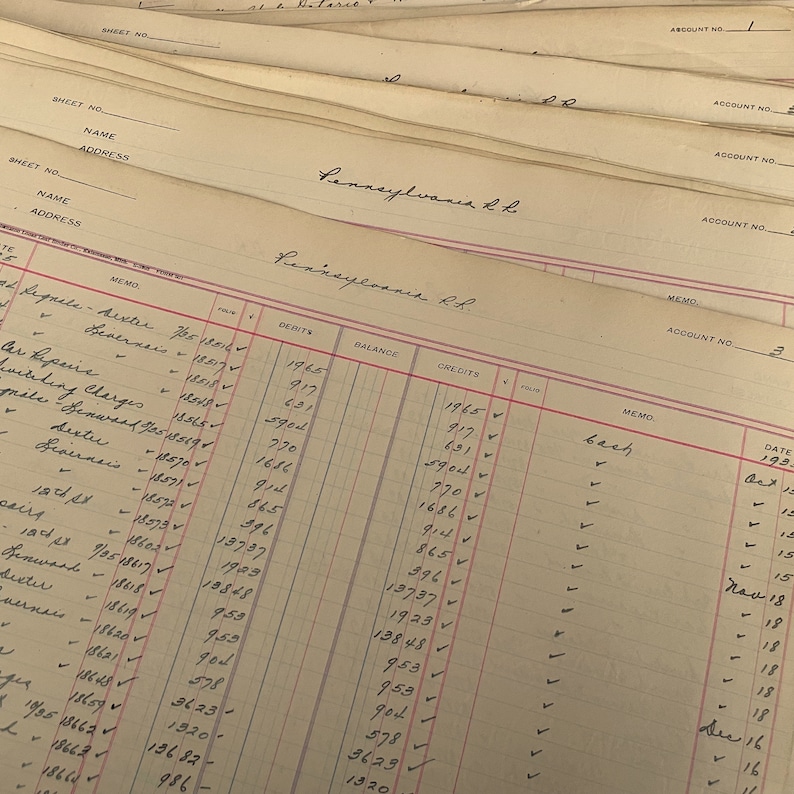 ACCOUNT NO. 1
SHEET NO.
R R
ACCOUNT NO.
SHEET NO.
NAME
ADDRESS
ACCOUNT NO.
Pennsylvania R R
ACCOUNT NO.
MEMO.
SHEET NO.
NAME
ADDRESS
Pennsylvania R.R.
ACCOUNT NO. 3
MEMO. FOLIO √ DEBITS BALANCE CREDITS √ FOLIO MEMO. DATE
193
Signals - Dexter 7/35 18516 ✓ 1965 1965 ✓ Cash Oct 15
" Livernois " 18517 ✓ 917 917 ✓ " " 15
" " " 18518 ✓ 631 631 ✓ " " 15
Car Repairs 18548 ✓ 5904 5904 ✓ " " 15
Switching Charges 18565 ✓ 770 770 ✓ " " 15
Signals - Linwood 8/35 18569 ✓ 1686 1686 ✓ " Nov 18
" Dexter " 18570 ✓ 914 914 ✓ " " 18
" Livernois " 18571 ✓ 865 865 ✓ " " 18
" 18572 ✓ 396 396 ✓ " " 18
12th St " 18573 ✓ 13737 13737 ✓ " " 18
18602 ✓ 1923 1923 ✓ " " 18
- 12th St 9/35 18617 ✓ 13848 13848 ✓ " Dec 16
Linwood " 18618 ✓ 953 953 ✓ " " 16
Dexter " 18619 ✓ 953 953 ✓
Livernois " 18620 ✓ 904 904 ✓
" " 18621 ✓ 578 578 ✓
18648 ✓ 3623 3623 ✓
18659 ✓ 1320 1320
10/35 18662 ✓ 13682
18663 ✓ 986
18664